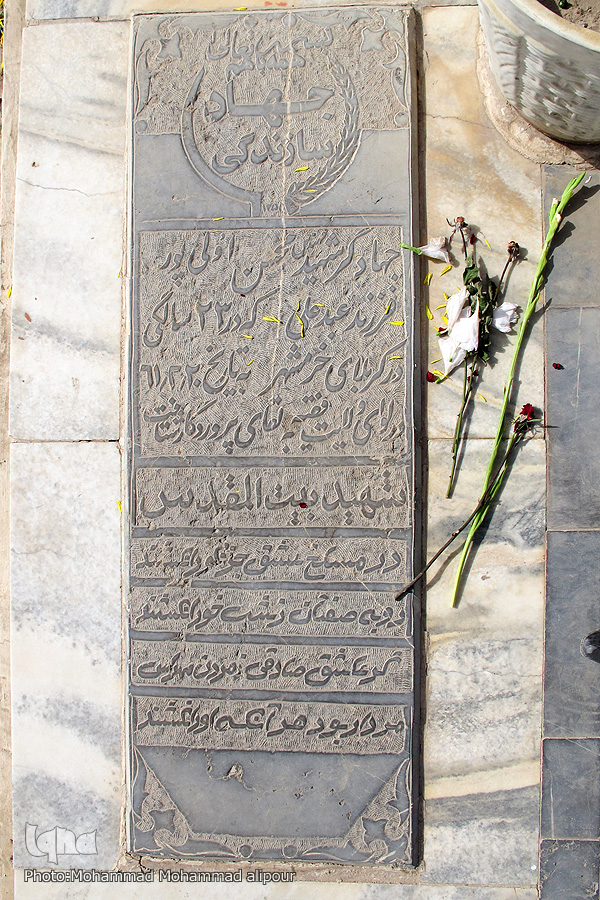 بسمه تعالی
جهاد
سازندگی
جهادگر شهید محسن اولی پور
فرزند عبدعلی که در ۲۳ سالگی
در کربلای خرمشهر به تاریخ ۶۱/۲/۲۰
در راه ولایت فقیه به لقای پروردگار شتافت
شهید بیت المقدس
در مسلخ عشق جز نکو را نکشند
روبه صفتان زشت خو را نکشند
گر عاشق صادقی ز مردن مهراس
مردار بود هر آنکه او را نکشند
iqna
Photo:Mohammad Mohammad alipour